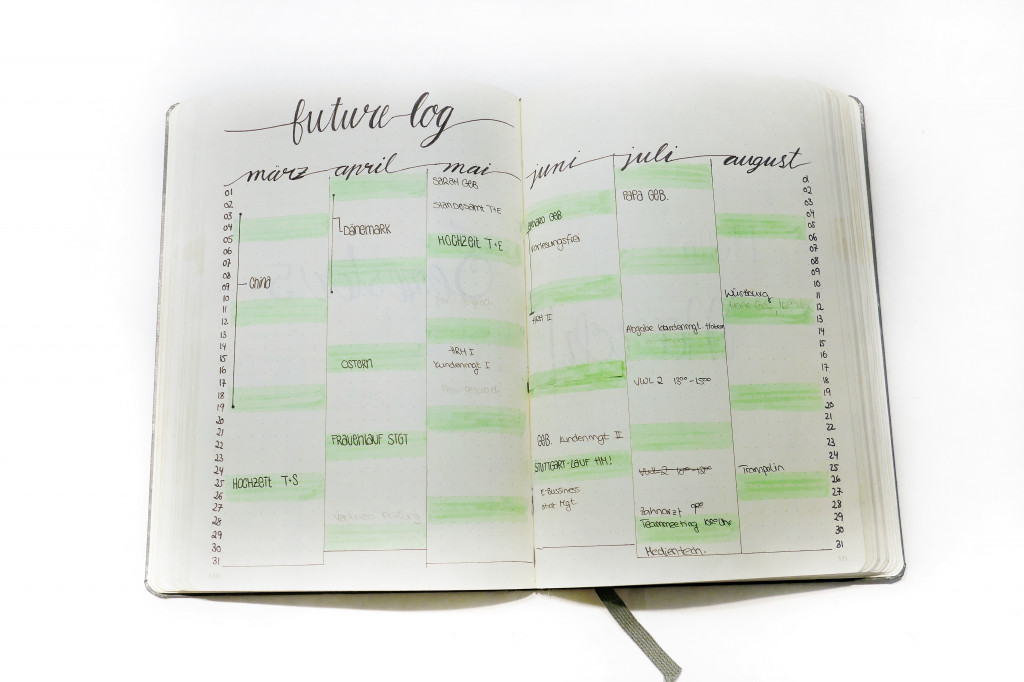 future log
märz april mai juni juli august
01
02
03
04
05
06
07
08
09
10
11
12
13
14
15
16
17
18
19
20
21
22
23
24
25
26
27
28
29
30
31
China
HOCHZEIT T+S
DÄNEMARK
OSTERN
FRAUENLAUF STGT
SARAH GEB
Standesamt T+E
HOCHZEIT T+E
HRM I
Kundenmgt I
GEB
Vorlesungsfrei
HRM II
GEB. Kundenmgt II
STUTTGART-LAUF HM!
E-Bussiness
strat Mgt.
PAPA GEB.
Abgabe Kundenmgt.
VWL 2 13⁰⁰-15⁰⁰
VWL 2
Zahnarzt
Teammeeting
Medientech.
Würzburg
Trampolin
01
02
03
04
05
06
07
08
09
10
11
12
13
14
15
16
17
18
19
20
21
22
23
24
25
26
27
28
29
30
31